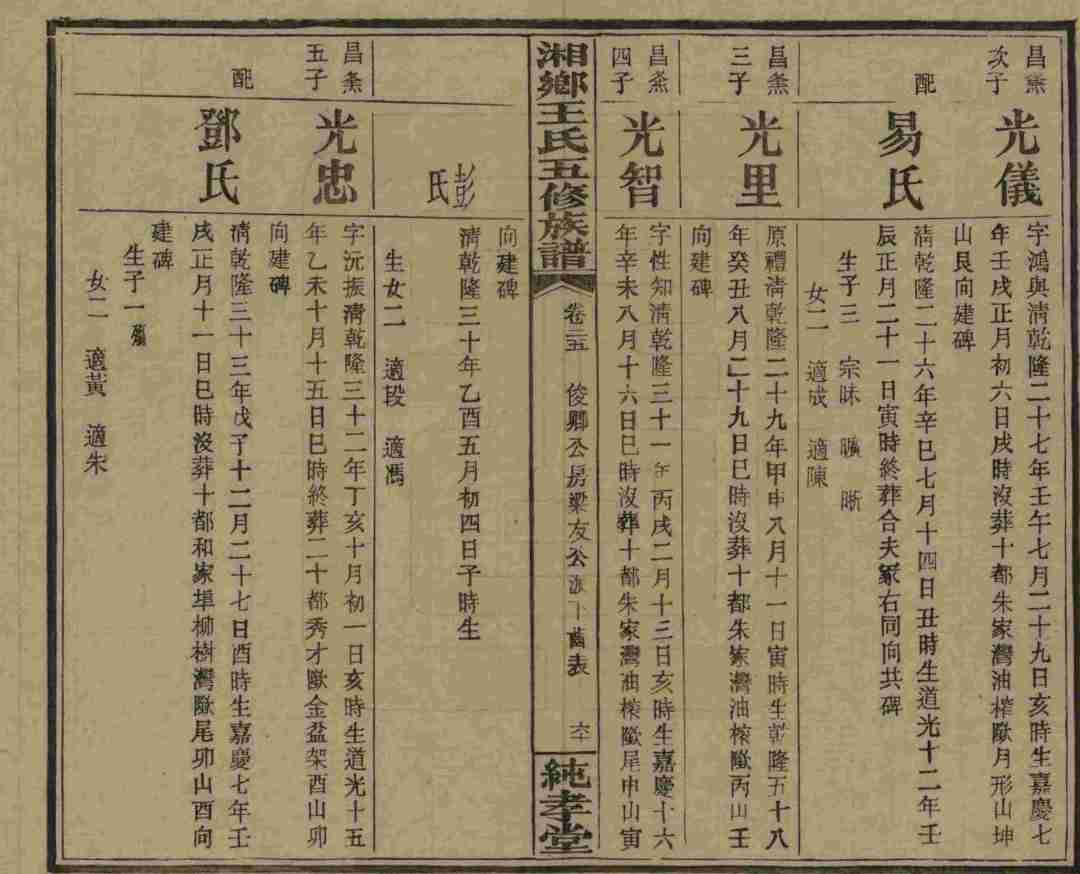 昌燾
次子
光儀
字鴻與清乾隆二十七年壬午七月二十九日亥時生嘉慶七
年壬戌正月初六日戌時沒葬十都朱家灣油榨歐月形山坤
山艮向建碑
配
易氏
清乾隆二十六年辛巳七月十四日丑時生道光十二年壬
辰正月二十一日寅時終葬合夫冢右同向共碑
生子三 宗昧 曠 晰
女二 適成 適陳
昌燾
三子
光里
原禮清乾隆二十九年甲申八月十一日寅時生乾隆五十八
年癸丑八月二十九日巳時沒葬十都朱家灣油榨歐丙山壬
向建碑
昌燾
四子
光智
字性知清乾隆三十一年丙戌二月十三日亥時生嘉慶十六
年辛未八月十六日巳時沒葬十都朱家灣油榨歐尾申山寅
湘鄉王氏五修族譜
卷三五
俊卿公房梁友公派下舊表
卒
純孝堂
向建碑
彭氏
清乾隆三十年乙酉五月初四日子時生
生女二 適段 適馮
昌燾
五子
光忠
字沅振清乾隆三十二年丁亥十月初一日亥時生道光十五
年乙未十月十五日巳時終葬二十都秀才歐金盆架酉山卯
向建碑
配
鄧氏
清乾隆三十三年戊子十二月二十七日酉時生嘉慶七年壬
戌正月十一日巳時沒葬十都和家埠柳樹灣歐尾卯山酉向
建碑
生子一 殤
女二 適黃 適朱